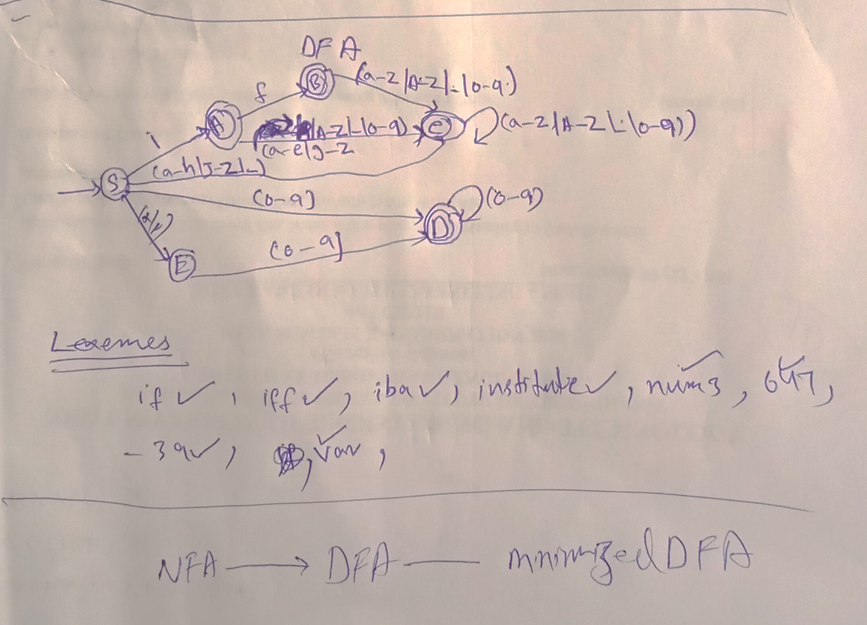 DFA
f
B
(a-z|A-Z|-|0-9)
i
A
|A-Z|-|0-9)
C
(a-z|A-Z|-|0-9))
(a-e|g-z
(a-h|j-z|-)
S
(0-9)
D
(0-9)
E
(0-9)
Lexemes
if ✓, iff ✓, iba ✓, institute ✓, num3 ✓, 647 ✓,
-39 ✓, var ✓,
NFA → DFA — minimized DFA